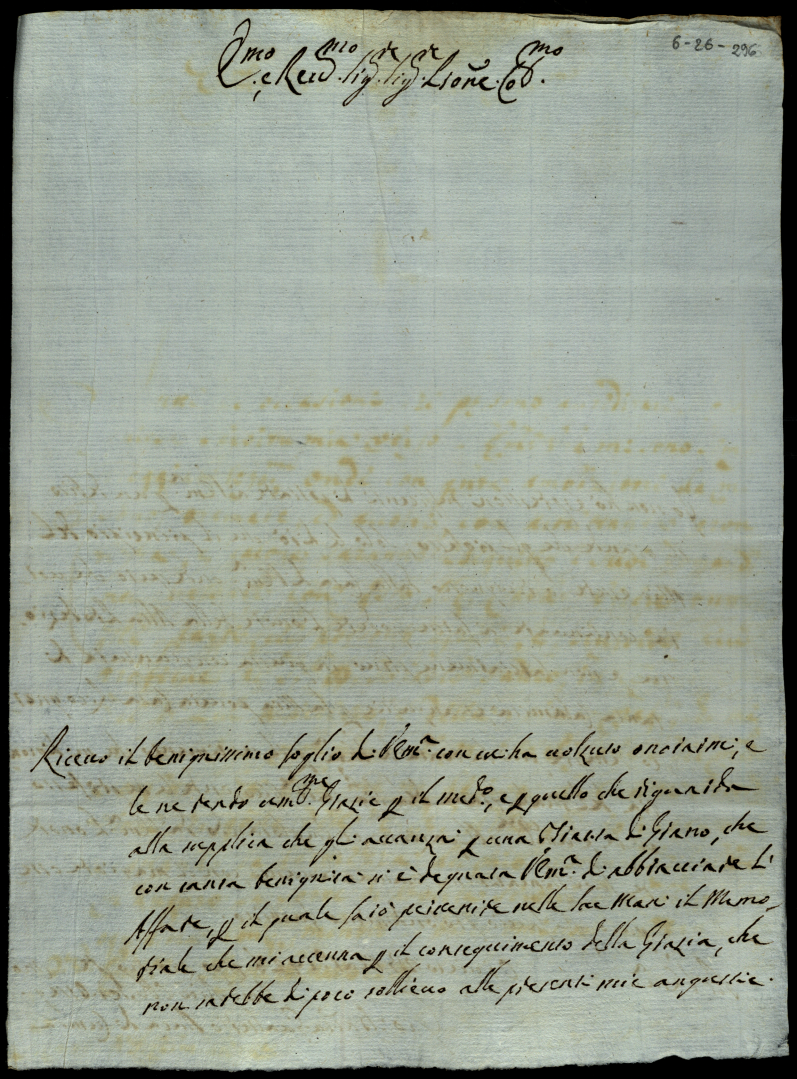 6-26-296
Ill.mo e Reu.mo Sig.re Sig.re P.rone Col.mo
Riceuo il benignissimo foglio di V.S. Ill.ma con cui ha uoluto onorarmi, e
le ne rendo um.me Grazie p il med.o, e p quello che riguarda
alla supplica che gli auanzai p una Tratta di Grano, che
con tanta benignità si è degnata V.S. Ill.ma di abbracciare l'
Affare, p il quale farò peruenire nelle Sue Mani il Memo,
riale che mi accenna p il conseguimento della Grazia, che
non sarebbe di poco sollieuo alle presenti mie angustie.